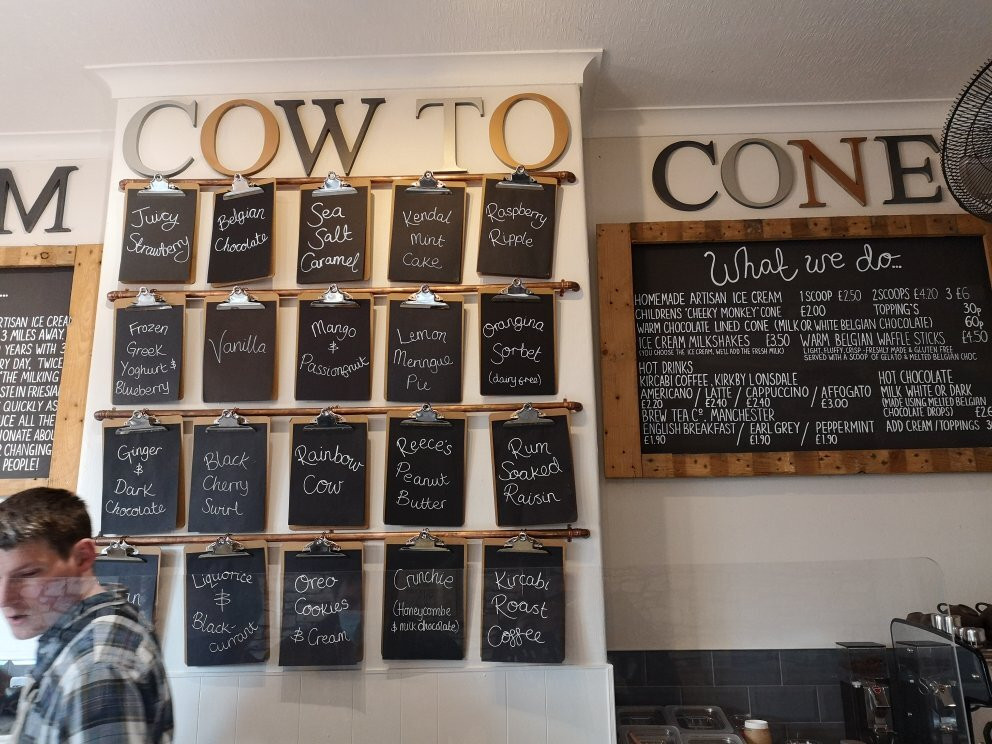 M
COW TO
CONE
Juicy
Strawberry
Belgian
Chocolate
Sea
Salt
Caramel
Kendal
Mint
Cake
Raspberry
Ripple
Frozen
Greek
Yoghurt &
Blueberry
Vanilla
Mango
&
Passionfruit
Lemon
Meringue
Pie
Orangina
Sorbet
(dairy free)
Ginger
&
Dark
Chocolate
Black-
Cherry
Swirl
Rainbow
Cow
Reece's
Peanut
Butter
Rum
Soaked
Raisin
Liquorice
&
Black-
currant
Oreo
Cookies
& Cream
Crunchie
(Honeycombe
& milk chocolate)
Kircabi
Roast
Coffee
...
ARTISAN ICE CREA
3 MILES AWAY
YEARS WITH 3
RY DAY, TWICE
THE MILKING
STEIN FRIESIA
QUICKLY AS
UCE ALL THE
IONATE ABOU
R CHANGING
PEOPLE!
What we do...
HOMEMADE ARTISAN ICE CREAM 1 SCOOP £2.50 2 SCOOPS £4.20 3 £6
CHILDRENS 'CHEEKY MONKEY' CONE £2.00 TOPPING'S 30p
WARM CHOCOLATE LINED CONE (MILK OR WHITE BELGIAN CHOCOLATE) 60p
ICE CREAM MILKSHAKES £3.50 WARM BELGIAN WAFFLE STICKS £4.50
(YOU CHOOSE THE ICE CREAM, WE'LL ADD THE FRESH MILK) LIGHT, FLUFFY, CRISP - FRESHLY MADE & GLUTEN FREE
SERVED WITH A SCOOP OF GELATO & MELTED BELGIAN CHOC
HOT DRINKS
KIRCABI COFFEE, KIRKBY LONSDALE
AMERICANO / LATTE / CAPPUCCINO / AFFOGATO
£2.20 £2.40 £2.40 £3.00
BREW TEA Co. MANCHESTER
ENGLISH BREAKFAST / EARL GREY / PEPPERMINT
£1.90 £1.90 £1.90
HOT CHOCOLATE
MILK WHITE OR DARK
(MADE USING MELTED BELGIAN
CHOCOLATE DROPS) £2.6
ADD CREAM/TOPPINGS 3